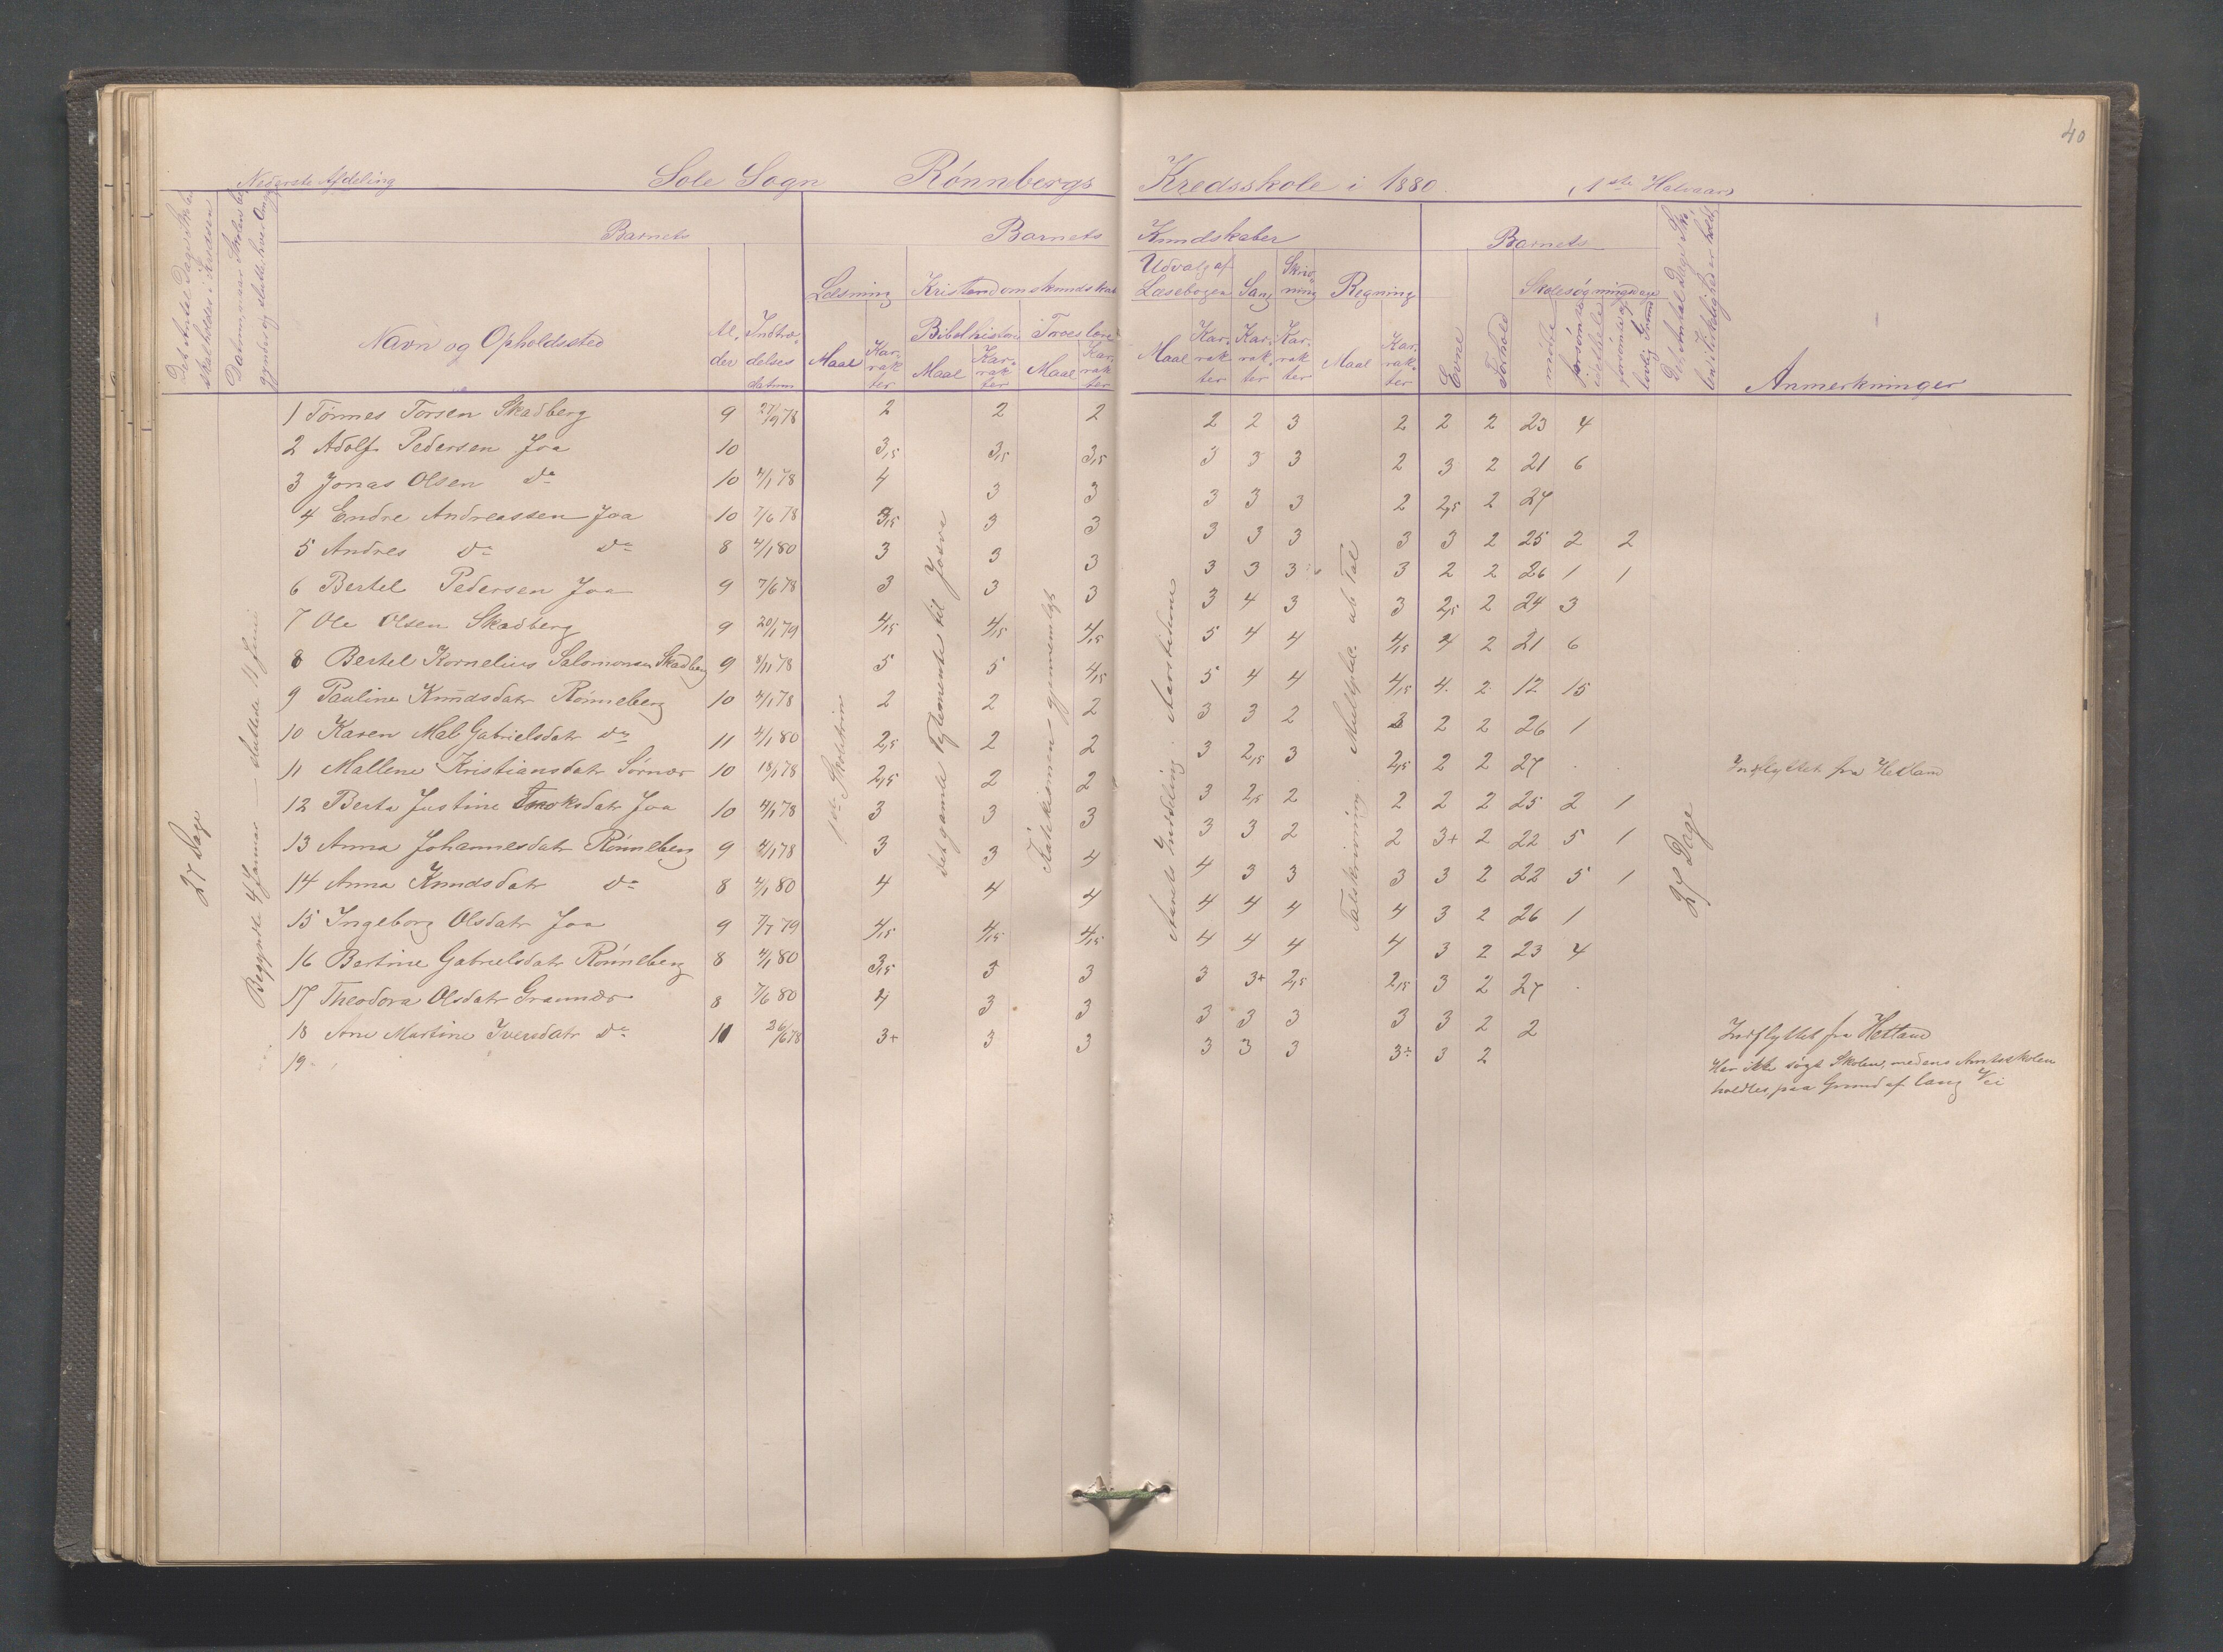 40
Nederste Afdeling Sole Sogn Rønnbergs Kredsskole i 1880. 1ste Halvaar
Det Antal Dage Skolen
skal holdes i Kredsen
Datum, naar Skolen be-
gynder og slutter hver Omgang
Barnets Barnets Kundskaber Barnets
Navn og Opholdssted
Al-
der
Indtræ-
delses
datum
Læsning Kristendomskundskab
Bibelhistorie Troeslære
Maal Kar-
rak
ter
Maal Kar-
rak
ter
Maal Kar-
rak
ter
Udvalg af
Læsebogen Sang Skriv-
ning Regning
Maal Kar-
rak
ter
Kar-
rak
ter
Kar-
rak
ter
Maal Kar-
rak
ter
Evne
Forhold
Skolesøgningsdage
mødte
forsømte
idethele
forsømte af
lovlig Grund
Det Antal Dage Sko-
len i Virkeligheden er holdt
Anmerkninger
27 Dage
Begyndte 4 Januar — sluttede 11 Juni
Skoletrin
det gamle Testamente til Josva
Katekismen gjennemlest
Aandsudvikling. Aarstiderne
Talskrivning. Multiplic. ub Tal
27 Dage
1 Tønnes Torsen Skadberg 9 27/9 78 2 2 2 2 2 3 2 2 2 23 4
2 Adolf Pedersen Joa 10 3,5 3,5 3,5 3 3 3 2 3 2 21 6
3 Jonas Olsen do 10 4/1 78 4 3 3 3 3 3 2 2,5 2 27
4 Endre Andreassen Joa 10 7/6 78 3,5 3 3 3 3 3 3 3 2 25 2 2
5 Andres do do 8 4/1 80 3 3 3 3 3 3 3 2 2 26 1 1
6 Bertel Pedersen Joa 9 7/6 78 3 3 3 3 4 3 3 2,5 2 24 3
7 Ole Olsen Skadberg 9 20/1 79 4,5 4,5 4,5 5 4 4 4,5 4 2 21 6
8 Bertel Kornelius Salomonsen Skadberg 9 8/11 78 5 5 4,5 5 4 4 4,5 4 2 12 15
9 Pauline Knudsdatr Rønneberg 10 4/1 78 2 2 2 3 3 2 3 2 2 26 1
10 Karen Mal. Gabrielsdatr do 11 4/1 80 2,5 2 2 3 2,5 3 2,5 2 2 27
11 Mallene Kristiansdatr Sørnes 10 18/1 78 2,5 2 2 3 2,5 2 2 2 2 25 2 1 Indflyttet fra Hetland
12 Berta Justine Enoksdatr Joa 10 4/1 78 3 3 3 3 3 2 2 3+ 2 22 5 1
13 Anna Johannesdatr Rønneberg 9 4/1 78 3 3 4 4 3 3 3 3 2 22 5 1
14 Anna Knudsdatr do 8 4/1 80 4 4 4 4 4 4 4 3 2 26 1
15 Ingeborg Olsdatr Joa 9 7/7 79 4,5 4,5 4,5 4 4 4 4 3 2 23 4
16 Bertine Gabrielsdatr Rønneberg 8 4/1 80 3,5 3 3 3 3+ 2,5 2,5 3 2 27
17 Theodora Olsdatr Grannes 8 7/6 80 4 3 3 3 3 3 3 3 2 2 Indflyttet fra Hetland
18 Ane Martine Iversdatr do 11 26/6 78 3+ 3 3 3 3 3 3+ 3 2 Har ikke søgt Skolen, medens Amtsskolen
holdtes, paa Grund af lang Vei
19